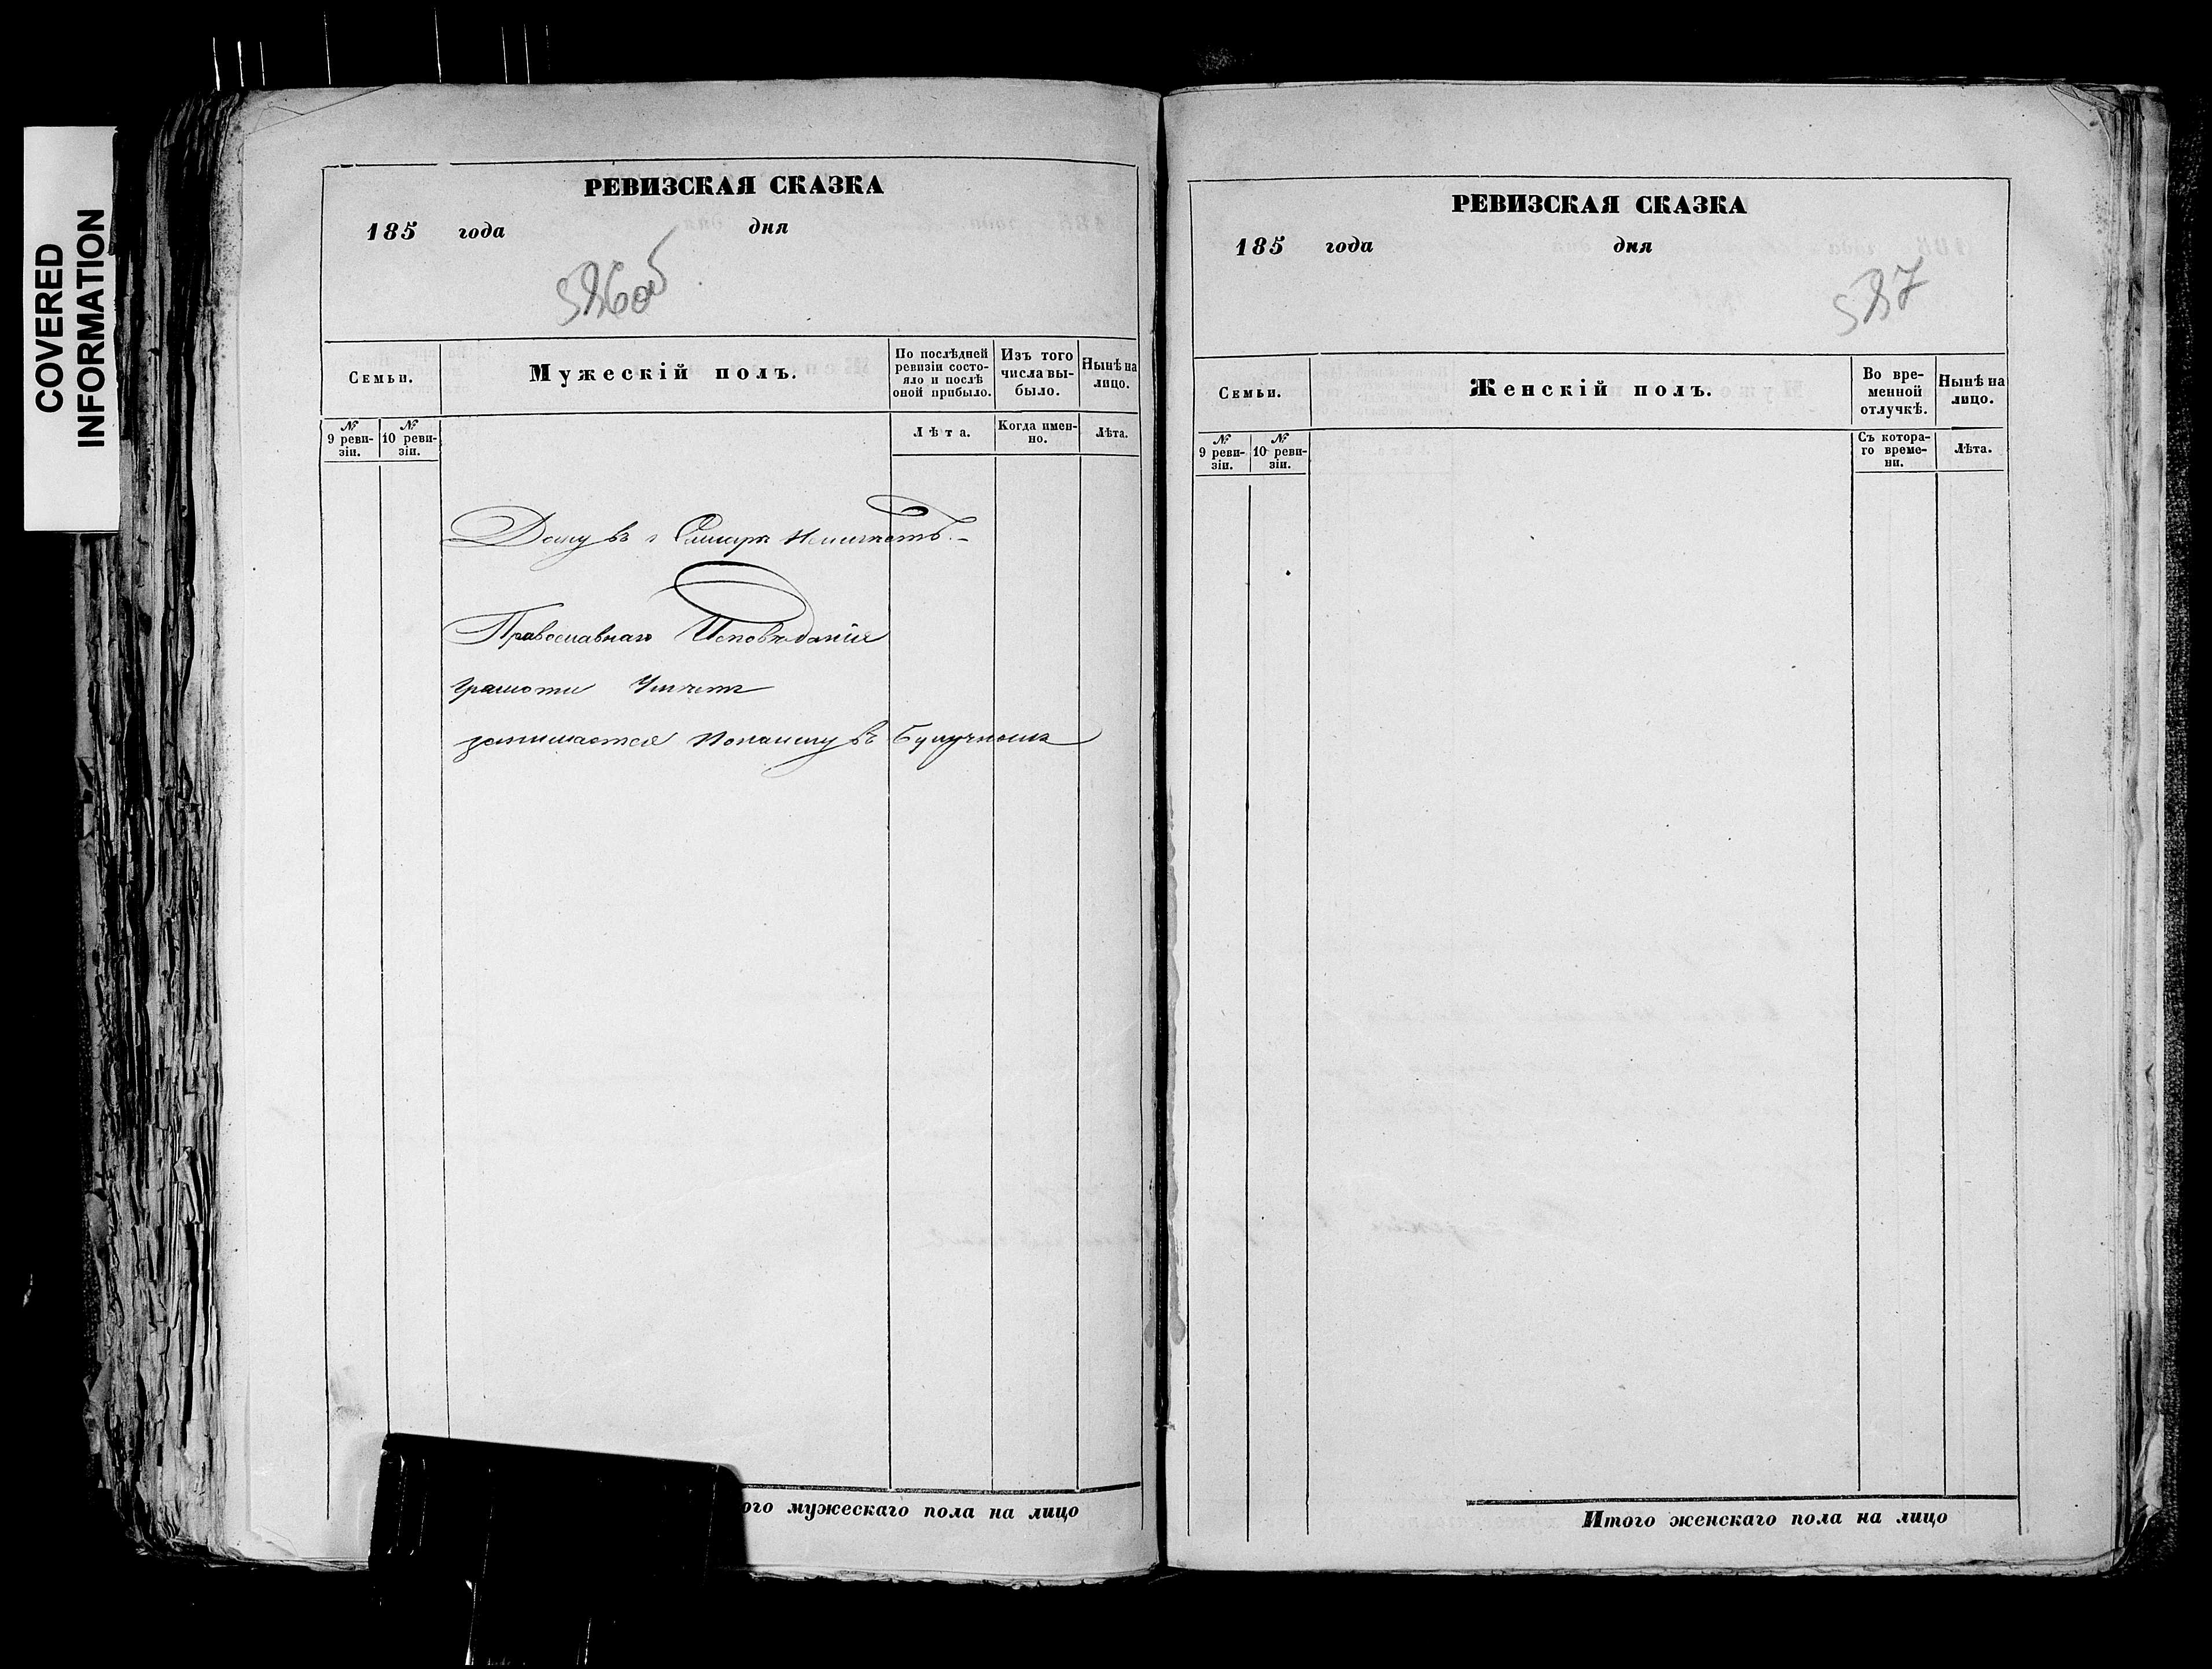 COVERED
INFORMATION
РЕВИЗСКАЯ СКАЗКА
185 года дня
536об
Семьи.
Мужескій полъ.
По послѣдней
ревизіи состо-
яло и послѣ
оной прибыло.
Изъ того
числа вы-
было.
Нынѣ на
лицо.
№
9 реви-
зіи.
№
10 реви-
зіи.
Лѣта.
Когда имен-
но.
Лѣта.
Дому въ г Самарѣ Неимѣетъ.-
Православнаго Исповѣданія
Грамоти Умѣетъ
занимается Понайму въ
ого мужескаго пола на лицо
РЕВИЗСКАЯ СКАЗКА
185 года дня
537
Семьи.
Женскій полъ.
Во вре-
менной
отлучкѣ.
Нынѣ на
лицо.
№
9 реви-
зіи.
№
10 реви-
зіи.
Съ котора-
го време-
ни.
Лѣта.
Итого женскаго пола на лицо